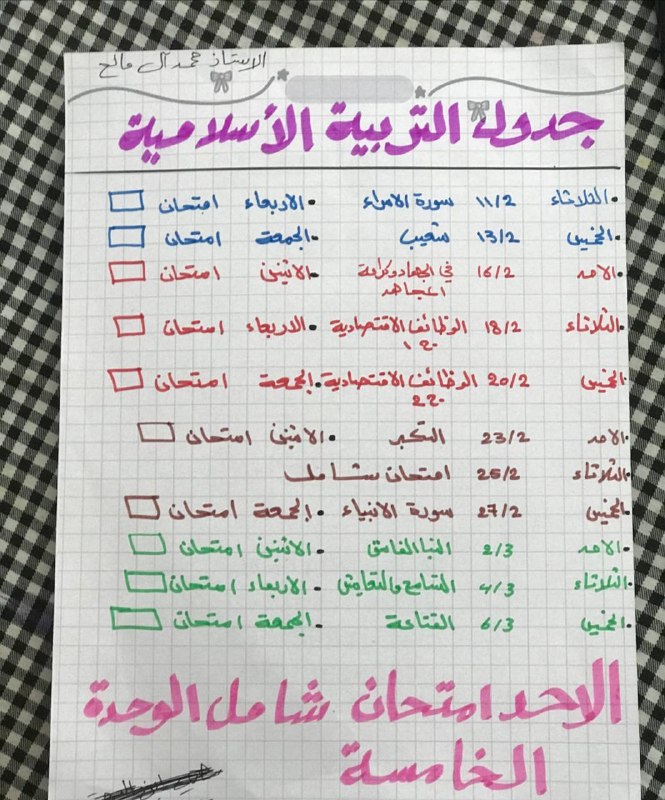 الاستاذ محمد آل مالح
جدول التربية الأسلامية
•الثلاثاء 11/2 سورة الاسراء •الاربعاء امتحان
•الخميس 13/2 شعيب •الجمعة امتحان
•الاحد 16/2 في الجهاد وكرامة المجاهد •الاثنين امتحان
•الثلاثاء 18/2 الوظائف الاقتصادية •الاربعاء امتحان
•الخميس 20/2 الوظائف الاقتصادية •الجمعة امتحان
•الاحد 23/2 التكبر •الاثنين امتحان
•الثلاثاء 25/2 امتحان شامل
•الخميس 27/2 سورة الانبياء •الجمعة امتحان
•الاحد 2/3 •الاثنين امتحان
•الثلاثاء 4/3 التسامح والتعايش •الاربعاء امتحان
•الخميس 6/3 القناعة •الجمعة امتحان
الاحد امتحان شامل الوحدة
الخامسة